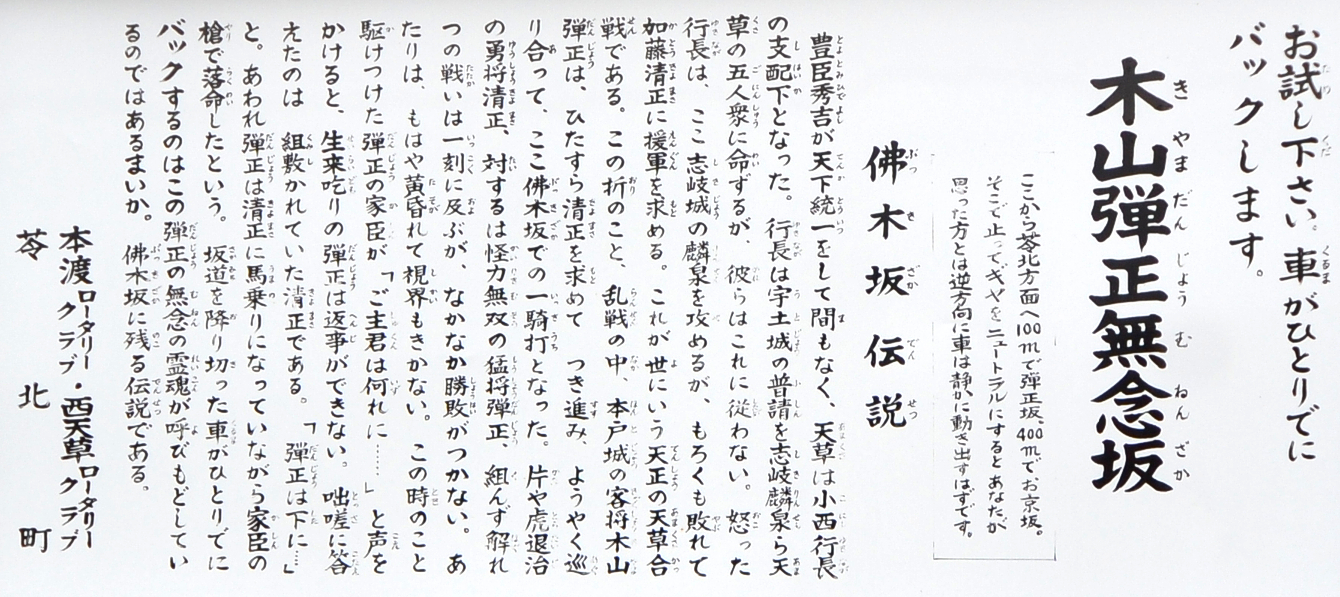 お試し下さい。車がひとりでに
バックします。
木山弾正無念坂
ここから苓北方面へ100mで弾正坂、400mでお京坂。
そこで止って、ギヤをニュートラルにするとあなたが
思った方とは逆方向に車は静かに動き出すはずです。
佛木坂伝説
豊臣秀吉が天下統一をして間もなく、天草は小西行長
の支配下となった。行長は宇土城の普請を志岐麟泉ら天
草の五人衆に命ずるが、彼らはこれに従わない。怒った
行長は、ここ志岐城の麟泉を攻めるが、もろくも敗れて
加藤清正に援軍を求める。これが世にいう天正の天草合
戦である。この折のこと、乱戦の中、本戸城の客将木山
弾正は、ひたすら清正を求めて つき進み、ようやく巡
り合って、ここ佛木坂での一騎打となった。片や虎退治
の勇将清正、対するは怪力無双の猛将弾正 組んず解れ
つの戦いは一刻に及ぶが、なかなか勝敗がつかない。あ
たりは、もはや黄昏れて視界もきかない。この時のこと
駆けつけた弾正の家臣が「ご主君は何れに……」と声を
かけると、生来吃りの弾正は返事ができない。咄嗟に答
えたのは 組敷かれていた清正である。「弾正は下に…」
と。あわれ弾正は清正に馬乗りになっていながら家臣の
槍で落命したという。 坂道を降り切った車がひとりでに
バックするのはこの弾正の無念の霊魂が呼びもどしてい
るのではあるまいか。 佛木坂に残る伝説である。
本渡ロータリークラブ・西天草ロータリークラブ
苓北町